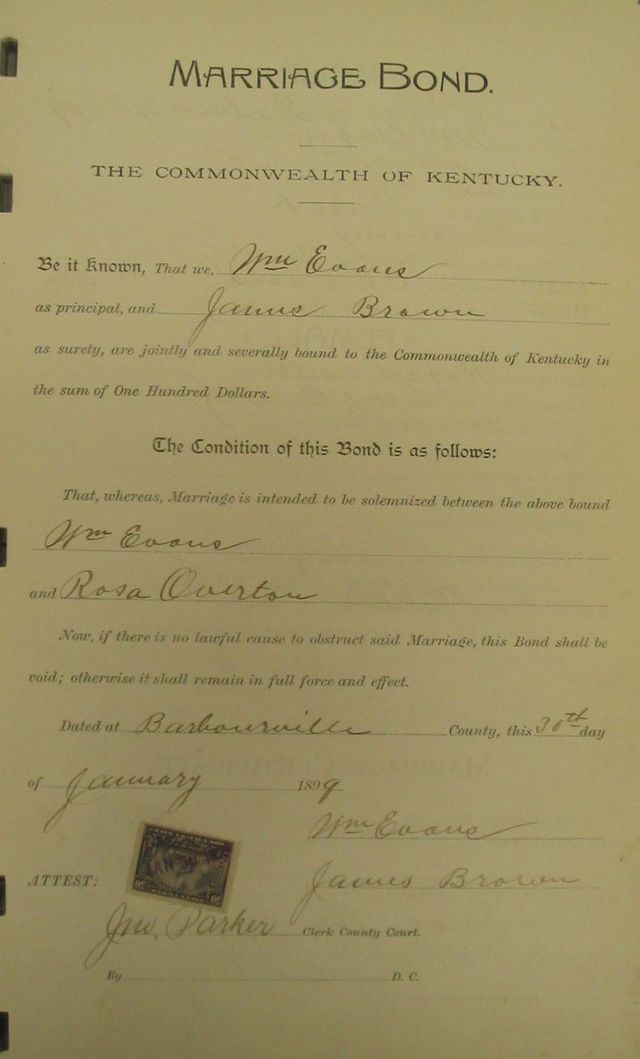 MARRIAGE BOND.
THE COMMONWEALTH OF KENTUCKY.
Be it Known, That we, Wm Evans
as principal, and James Brown
as surety, are jointly and severally bound to the Commonwealth of Kentucky in
the sum of One Hundred Dollars.
The Condition of this Bond is as follows:
That, whereas, Marriage is intended to be solemnized between the above bound
Wm Evans
and Rosa Overton
Now, if there is no lawful cause to obstruct said Marriage, this Bond shall be
void; otherwise it shall remain in full force and effect.
Dated at Barbourville County, this 30th day
of January 1899
Wm Evans
ATTEST: James Brown
Jno. Parker Clerk County Court.
By D. C.